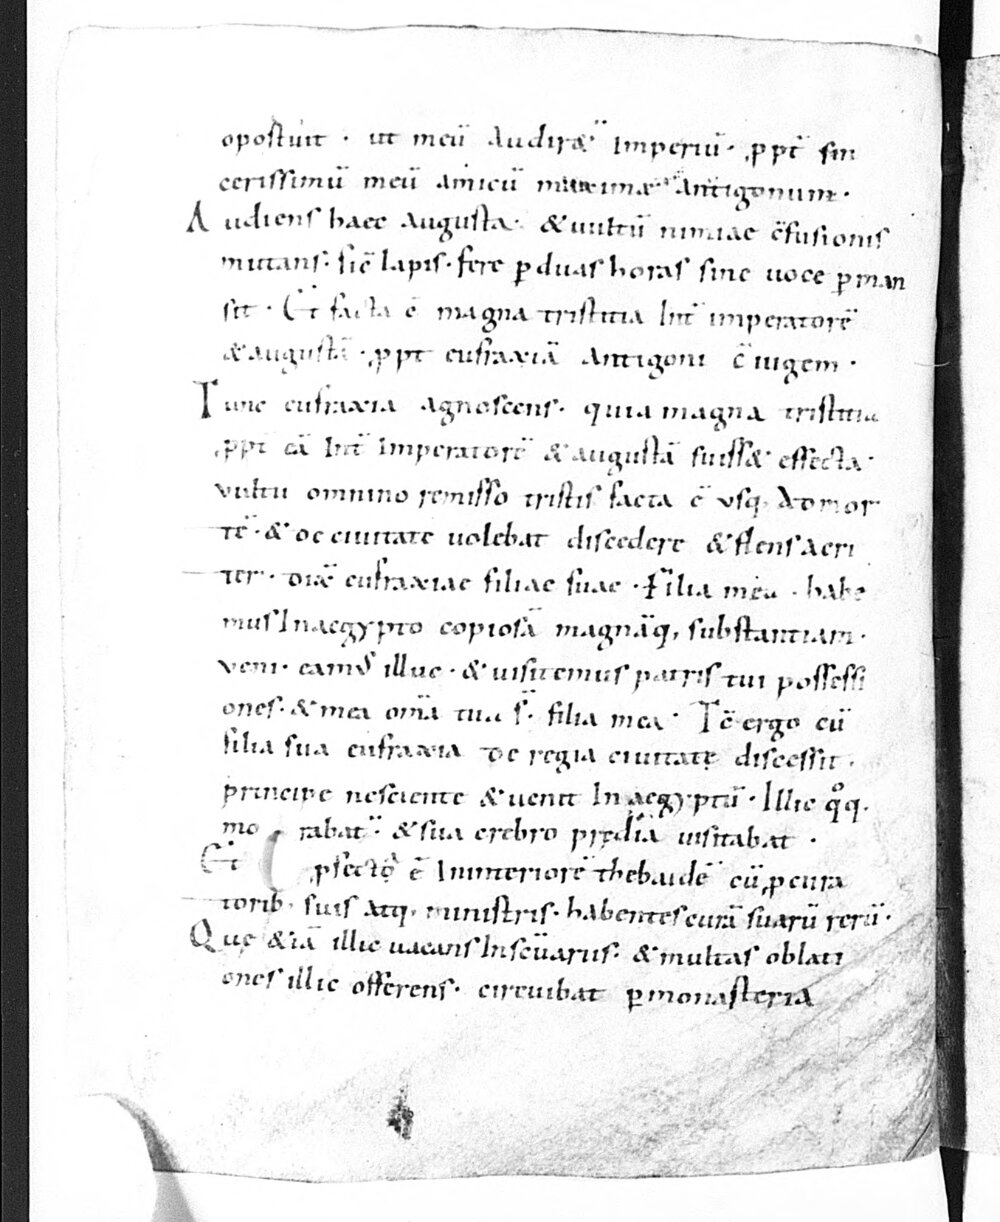 opostuit · ut meū Audiræ̈ Imperiū · ꝓpt̄ sin
cerissimū meū amicū maximæ Antigonum ·
Audiens haec augusta · & uultū nimiae c̄fusionis
mutans · sic̄ lapis · fere ꝑduas horas sine uoce ꝑman
sit · Et facta ē magna tristitia Int̄ imperatorē
& augustā · ꝓpt eufraxiā Antigoni c̄iugem ·
Tunc eufraxia agnoscens · quia magna tristitia
ꝓpt̄ eā Int̄ Imperatorē & augustā fuiss& effecta ·
vultu omnino remisso tristis facta ē vsq, Admor
tē · & de ciuitate uolebat discedere & flens Acri
ter · dix̄ eufraxiae filiae suae · Filia mea · habe
mus Inaegypto copiosā magnāq, substantiam ·
veni · eam᾽ illuc · & uisitemus patris tui possessi
ones · & mea om̄a tua s̄ · filia mea · Tc̄ ergo cū
filia sua eufraxia de regia ciuitate discessit ·
principe nesciente & uenit In aegyptū · Illic qͦq,
mo rabat̄ · & sua crebro prędia uisitabat ·
Et ꝓfecta ē Ininteriorē thebaidē cū ꝓcura
torib, suis atq, ministris · habentes curā suarū rerū ·
Quę &iā illic uacans Insc̄uariis · & multas oblati
ones illic offerens · circuibat ꝑmonasteria